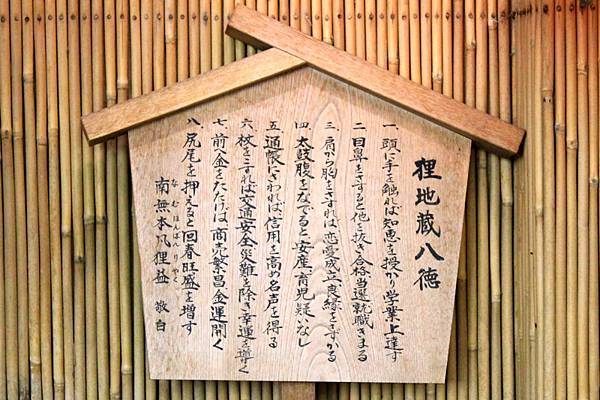 狸地蔵八徳
一、頭に手を触れば知恵を授かり学業上達す
二、目鼻をさすると他を抜き合格当選就職きまる
三、肩から胸をさすれば恋愛成立良縁をさずかる
四、太鼓腹をなでると安産、育児疑いなし
五、通帳にさわれば信用を高め名声を得る
六、杖をさすれば交通安全災難を除き幸運を導く
七、前八金をたたけば商売繁昌、金運開く
八、尻尾を押えると回春旺盛を増す
南無本凡狸益 敬白
なむほんぱんりやく